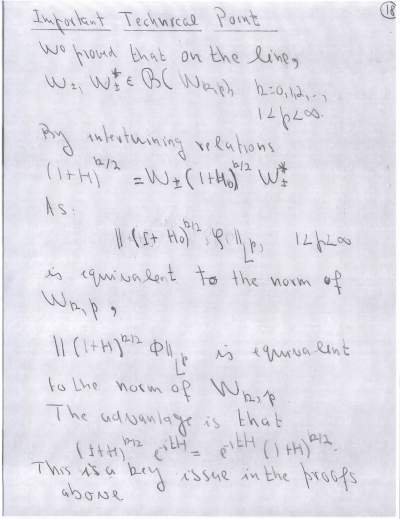 18
Important Technical Point
We proved that on the line,
W±, W±* ∈ B(W_{k,p}), k=0,1,2,..,
1<p<∞.
By intertwining relations
(I+H)^{k/2} = W± (I+H₀)^{k/2} W±*
As.
‖(I+H₀)^{k/2} φ‖_{L^p}, 1<p<∞
is equivalent to the norm of
W_{k,p},
‖(I+H)^{k/2} Φ‖_{L^p} is equivalent
to the norm of W_{k,p}
The advantage is that
(I+H)^{k/2} e^{itH} = e^{itH} (I+H)^{k/2}.
This is a key issue in the proofs
above